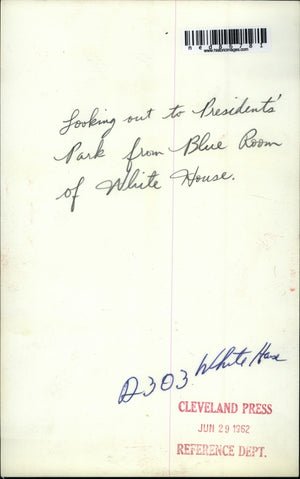 www.historicimages.com
Looking out to Presidents'
Park from Blue Room
of White House.
D303 White House
CLEVELAND PRESS
JUN 29 1962
REFERENCE DEPT.